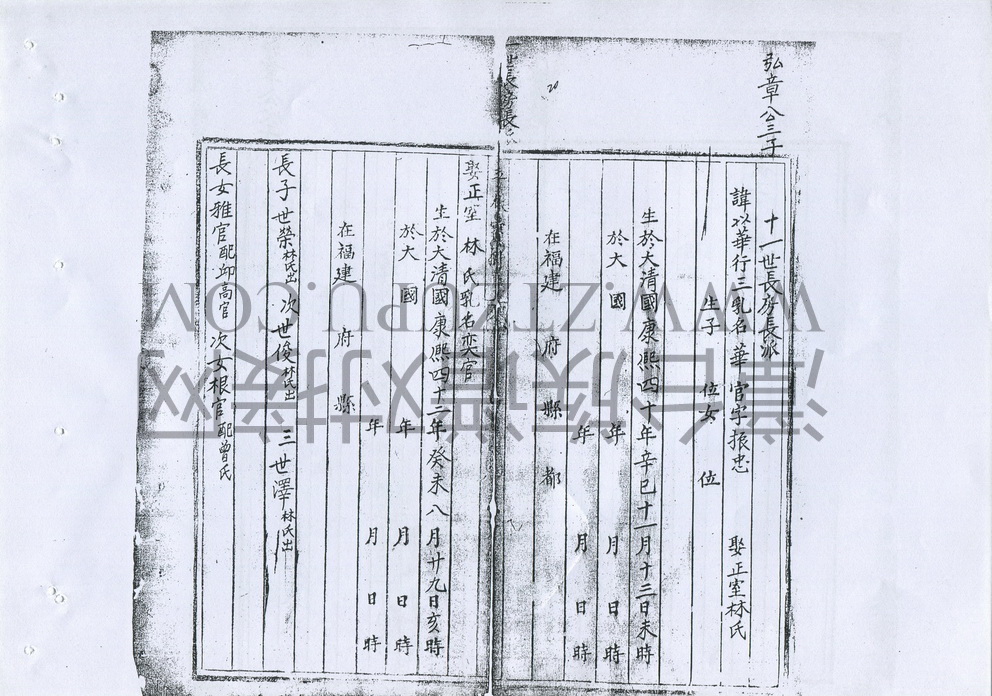 弘章公三子
十一世長房長派
諱以華行三乳名華官字振忠 娶正室林氏
生子 位女 位
生於大清國康熙四十年辛巳十一月十三日未時
於大 國 年 月 日 時
年 月 日 時
在福建 府 縣 都
世長房長
娶正室 林 氏乳名奕官
生於大清國康熙四十二年癸未八月廿九日亥時
於大 國 年 月 日 時
年 月 日 時
在福建 府 縣
長子世榮林氏出 次世俊林氏出 三世澤林氏出
長女雅官配邱高官 次女根官配曾氏
WWW.ZTZUPU.COM